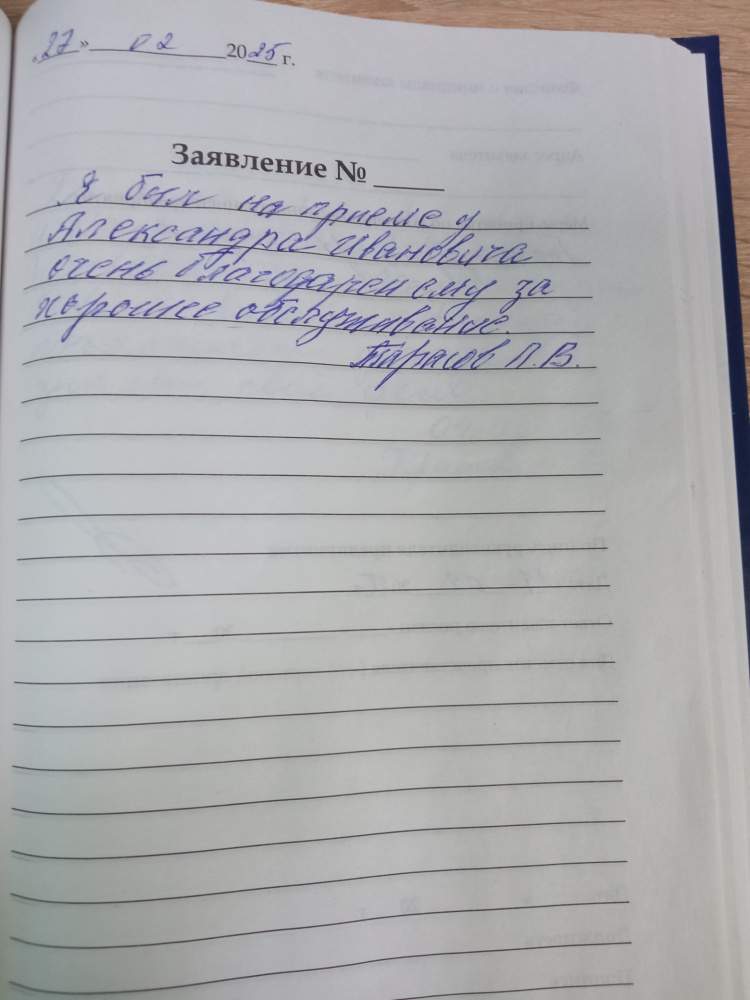 «27» 02 2025 г.
Заявление №
Я был на приеме у
Александра Ивановича
очень благодарен ему за
хорошее обслуживание.
Тарасов П.В.